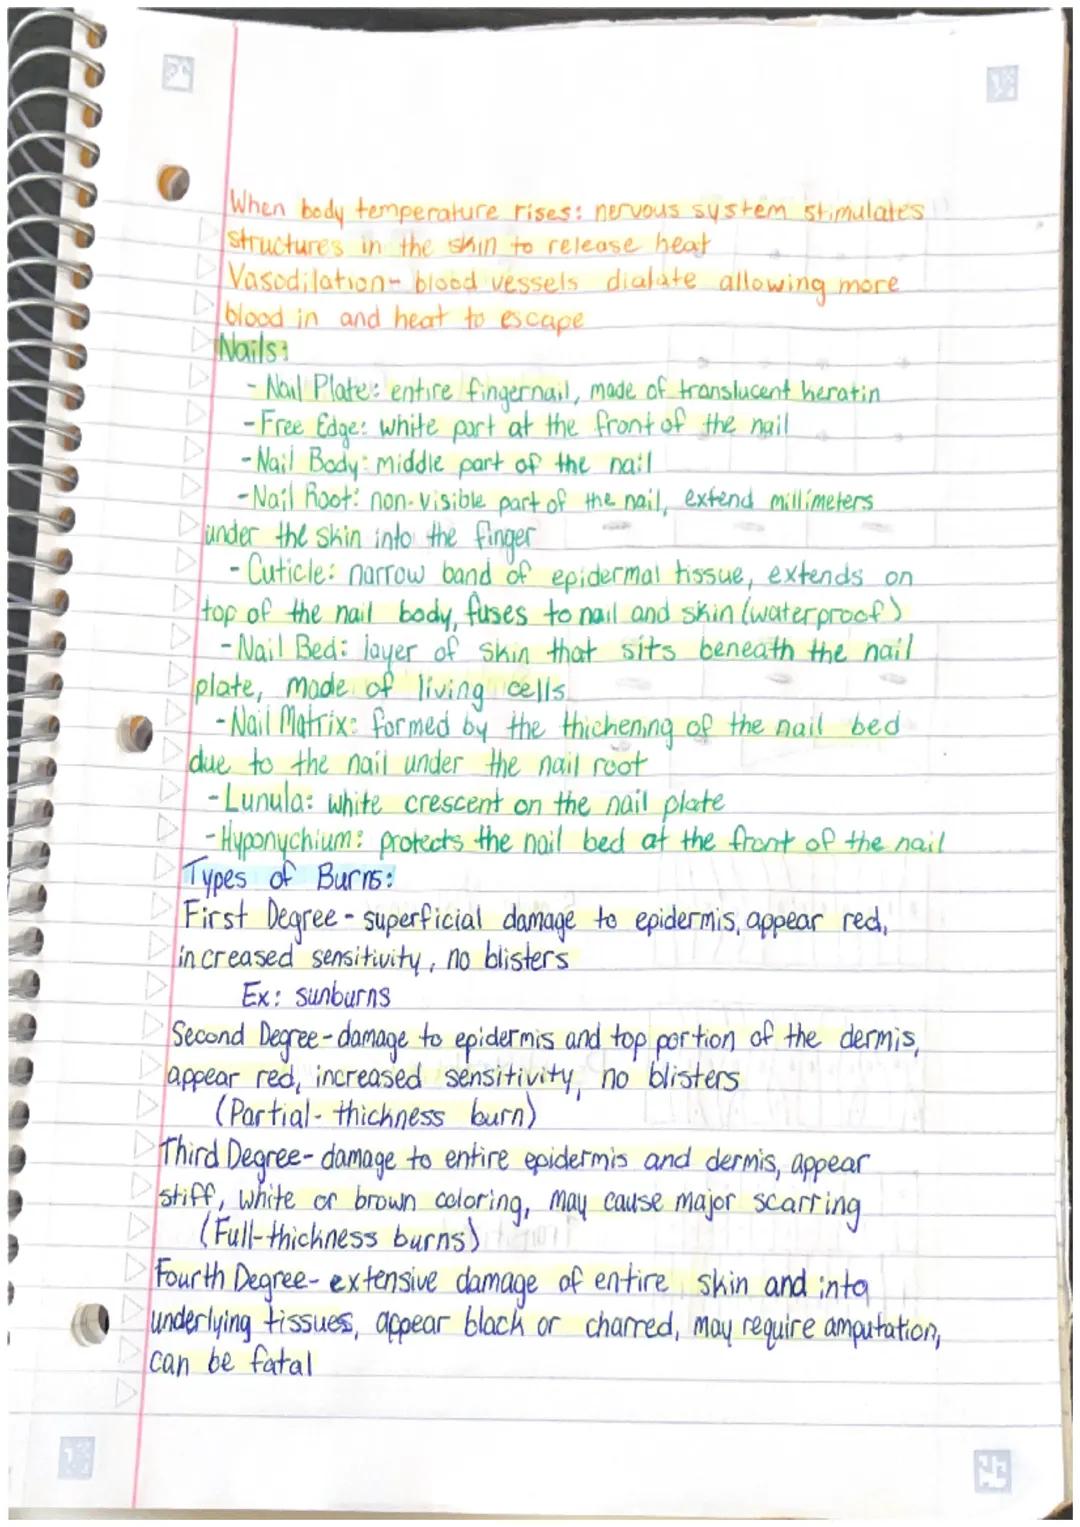 When body temperature rises: nervous system stimulates
structures in the skin to release heat
Vasodilation- blood vessels dialate allowing more
blood in and heat to escape
Nails:
- Nail Plate: entire fingernail, made of translucent keratin
- Free Edge: white part at the front of the nail
- Nail Body: middle part of the nail
- Nail Root: non-visible part of the nail, extend millimeters
under the skin into the finger
- Cuticle: narrow band of epidermal tissue, extends on
top of the nail body, fuses to nail and skin (waterproof)
- Nail Bed: layer of skin that sits beneath the nail
plate, made of living cells
- Nail Matrix: formed by the thickening of the nail bed
due to the nail under the nail root
- Lunula: white crescent on the nail plate
- Hyponychium: protects the nail bed at the front of the nail
Types of Burns:
First Degree - superficial damage to epidermis, appear red,
increased sensitivity, no blisters
Ex: sunburns
Second Degree - damage to epidermis and top portion of the dermis,
appear red, increased sensitivity, no blisters
(Partial-thickness burn)
Third Degree- damage to entire epidermis and dermis, appear
stiff, white or brown coloring, may cause major scarring
(Full-thickness burns)
Fourth Degree- extensive damage of entire skin and into
underlying tissues, appear black or charred, may require amputation,
can be fatal